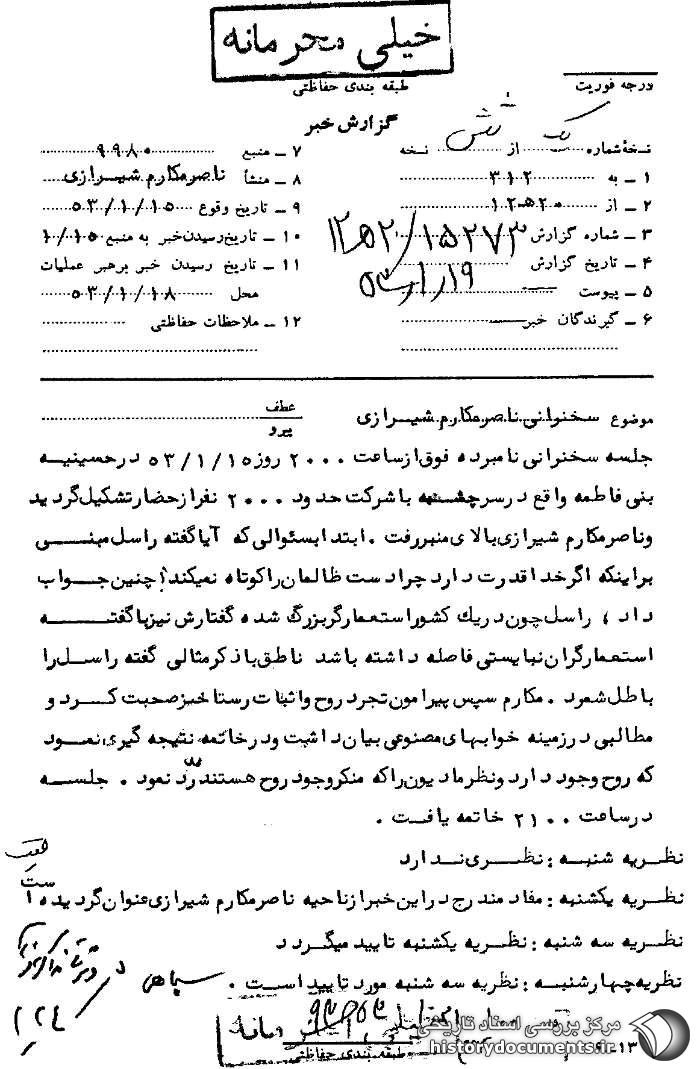 خیلی محرمانه
طبقه بندی حفاظتی
درجه فوریت
گزارش خبر
نسخهٔ شماره یک از شش نسخه
۱ ـ به ۳۱۲
۲ ـ از ۱۲ ه‍ ۲۰
۳ ـ شماره گزارش ۱۵۲۷۳/۱۲ ه‍ ۲۰
۴ ـ تاریخ گزارش ۵۳/۱/۱۹
۵ ـ پیوست
۶ ـ گیرندگان خبر
۷ ـ منبع ۹۹۸۰
۸ ـ منشأ ناصرمکارم شیرازی
۹ ـ تاریخ وقوع ۵۳/۱/۱۵
۱۰ ـ تاریخ رسیدن خبر به منبع ۱/۱۵
۱۱ ـ تاریخ رسیدن خبر برهبر عملیات
محل ۵۳/۱/۱۸
۱۲ ـ ملاحظات حفاظتی
موضوع سخنرانی ناصرمکارم شیرازی
عطف
پیرو
جلسه سخنرانی نامبرده فوق از ساعت ۲۰۰۰ روز ۵۳/۱/۱۵ در حسینیه
بنی فاطمه واقع در سرچشمه با شرکت حدود ۲۰۰۰ نفر از حضار تشکیل گردید
و ناصرمکارم شیرازی بالای منبر رفت . ابتدا بسئوالی که آیا گفته راسل مبنی
براینکه اگر خدا قدرت دارد چرا دست ظالمان را کوتاه نمیکند؟ چنین جواب
داد ، راسل چون در یك کشور استعمارگر بزرگ شده گفتارش نیز با گفته
استعمارگران نبایستی فاصله داشته باشد ناطق با ذکر مثالی گفته راسل را
باطل شمرد . مکارم سپس پیرامون تجرد روح و اثبات رستاخیز صحبت کرد و
مطالبی در زمینه خوابهای مصنوعی بیان داشت و در خاتمه نتیجه گیری نمود
که روح وجود دارد و نظر مادیون را که منکر وجود روح هستند ردّ نمود . جلسه
در ساعت ۲۱۰۰ خاتمه یافت .
نظریه شنبه : نظری ندارد
نظریه یکشنبه : مفاد مندرج در این خبر از ناحیه ناصرمکارم شیرازی عنوان گردیده است
نظریه سه شنبه : نظریه یکشنبه تایید میگردد
نظریه چهارشنبه : نظریه سه شنبه مورد تایید است . سپاهی
۲۲۴
خیلی محرمانه
طبقه بندی حفاظتی
مرکز بررسی اسناد تاریخی
historydocuments.ir